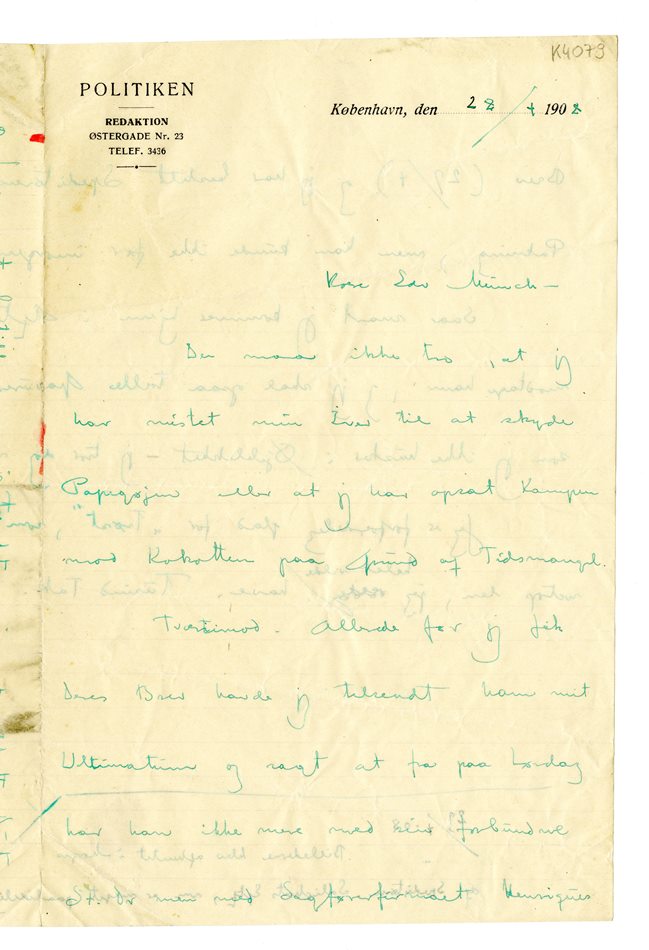 K4079
POLITIKEN
REDAKTION
ØSTERGADE Nr. 23
TELEF. 3436
København, den 28/4 1908
Kære Edv Munch –
De maa ikke tro, at jeg
har mistet min Iver til at skyde
Papegøjen eller at jeg har opsat Kampen
mod Kokotten paa Grund af Tidsmangel.
Tværtimod. Allerede før jeg fik
Deres Brev havde jeg tilsendt ham mit
Ultimatum og sagt at fra paa Lørdag
har han ikke mere med sin forbundne
men med Sagførerfirmaet Henriques